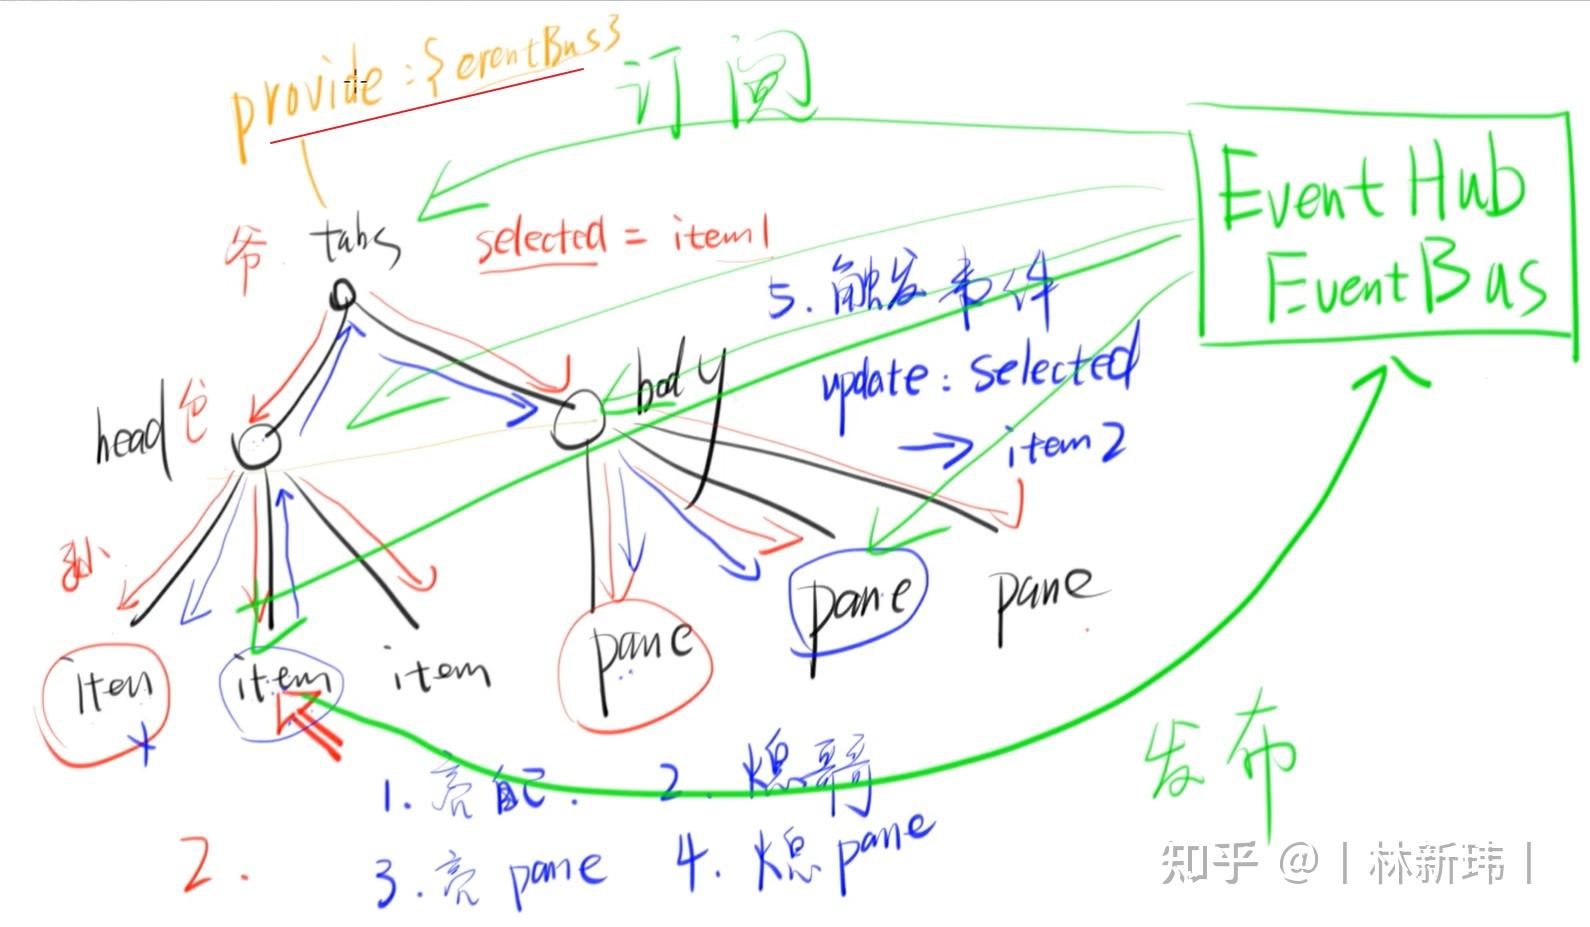 provide : { eventBus }
订阅
Event Hub
EventBus
爷 tabs
selected = item1
5. 触发事件
update : selected
→ item2
head 爸
body
孙
item
item
item
pane
pane
pane
1. 亮自己.
2. 熄哥哥
3. 亮 pane
4. 熄 pane
2.
发布
知乎 @丨林新玮丨